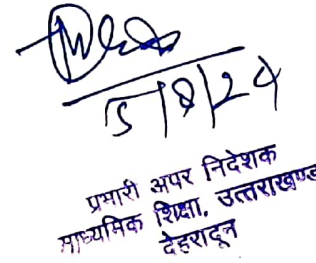 5/8/24
प्रभारी अपर निदेशक
माध्यमिक शिक्षा, उत्तराखण्ड
देहरादून